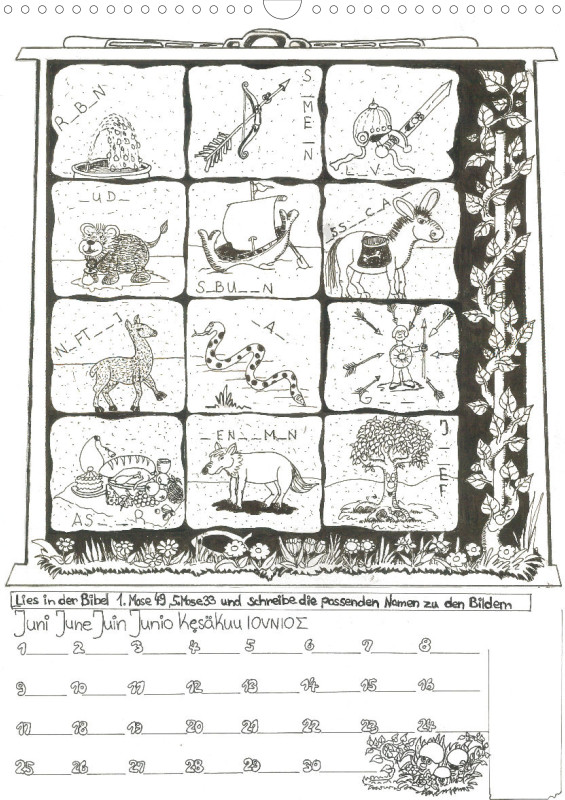 R_B_N
S_ME_N
L_V_
_UD_
S_BU__N
_SS__CA
N_FT__J
_A_
G___
AS___R
_EN__M_N
J__EF
Lies in der Bibel 1. Mose 49, 5. Mose 33 und schreibe die passenden Namen zu den Bildern
Juni June Juin Junio Kesäkuu ΙΟΥΝΙΟΣ
1 2 3 4 5 6 7 8
9 10 11 12 13 14 15 16
17 18 19 20 21 22 23 24
25 26 27 28 29 30